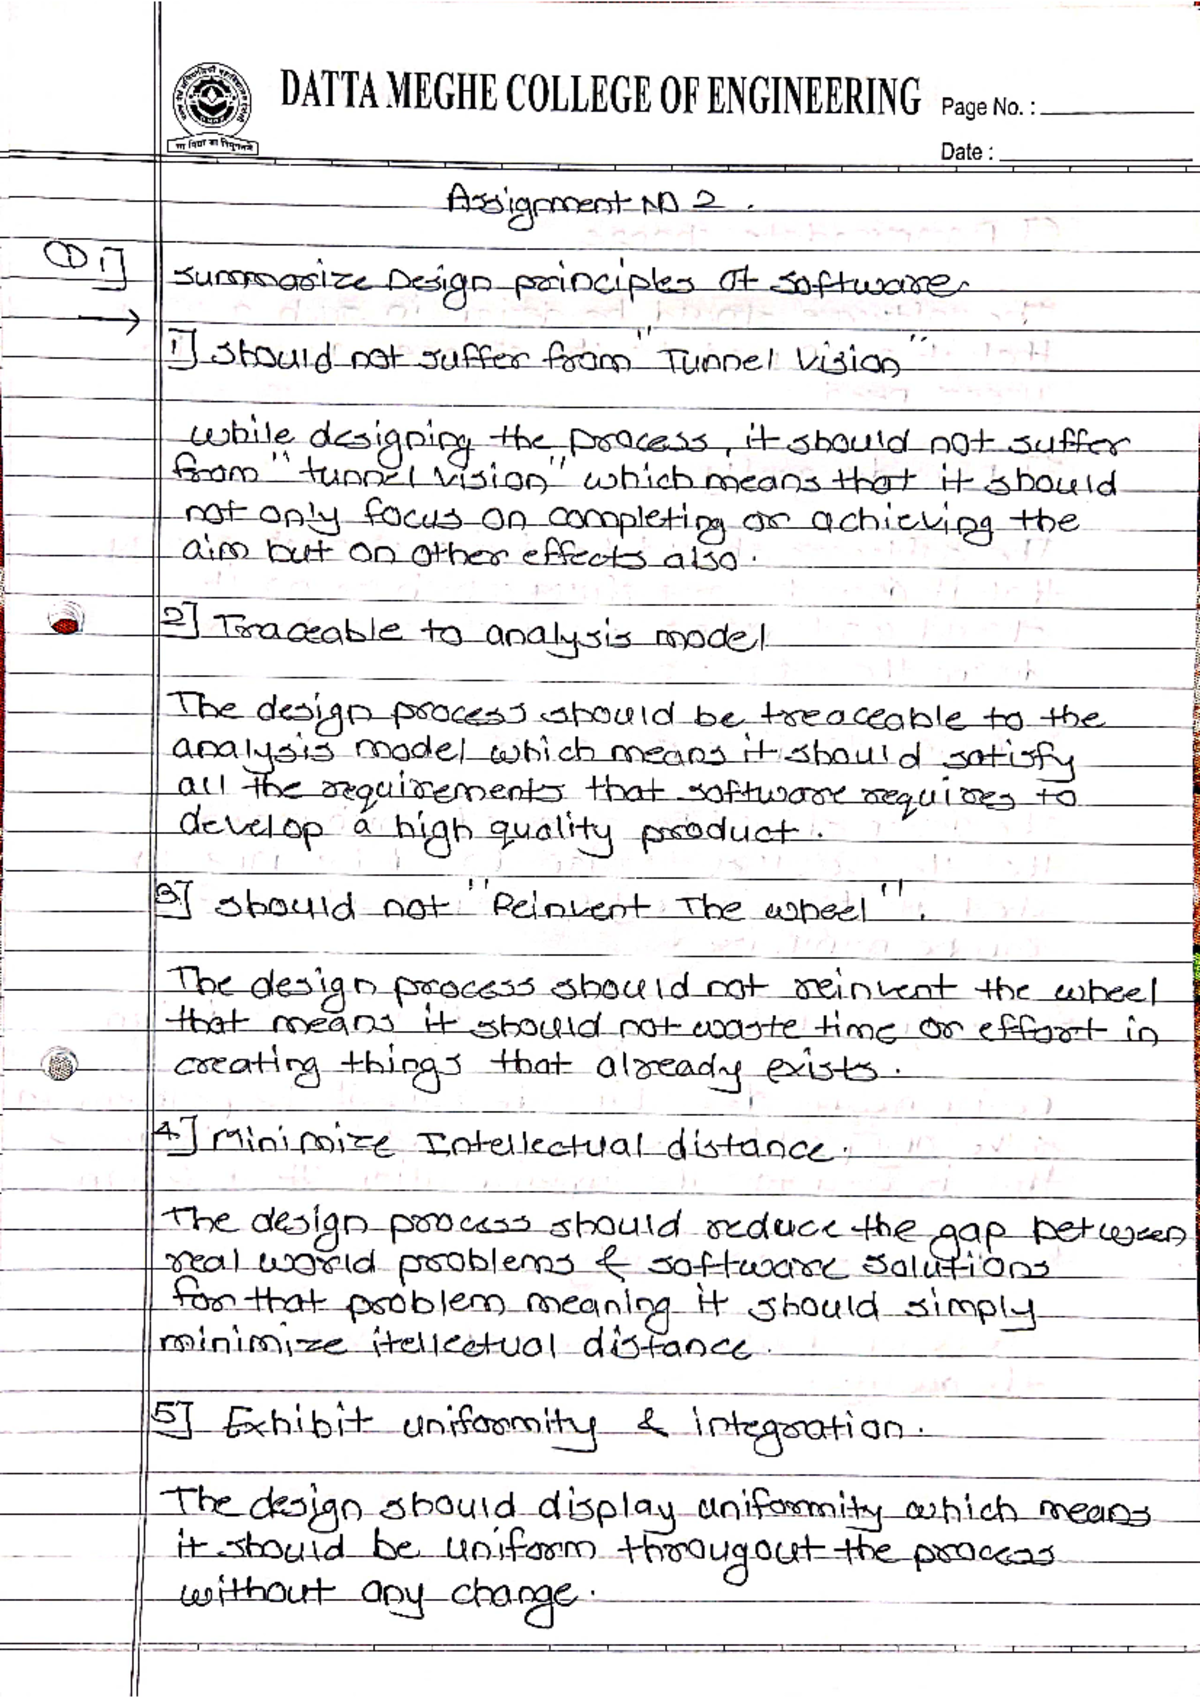 DATTA MEGHE COLLEGE OF ENGINEERING Page No. :
Date :
Assignment NO 2.
① i]
Summarize Design principles Of Software.
1] Should not suffer from "Tunnel Vision"
while designing the process, it should not suffer
from "tunnel vision" which means that it should
not only focus on completing or achieving the
aim but on other effects also.
2] Traceable to analysis model
The design process should be treaceable to the
analysis model which means it should satisfy
all the requirements that software requires to
develop a high quality product.
3] should not "Reinvent The wheel".
The design process should not reinvent the wheel
that means it should not waste time or effort in
creating things that already exists.
4] Minimize Intellectual distance.
The design process should reduce the gap between
real world problems & software solutions
for that problem meaning it should simply
minimize itellectual distance.
5] Exhibit uniformity & integration.
The design should display uniformity which means
it should be uniform througout the process
without any change.